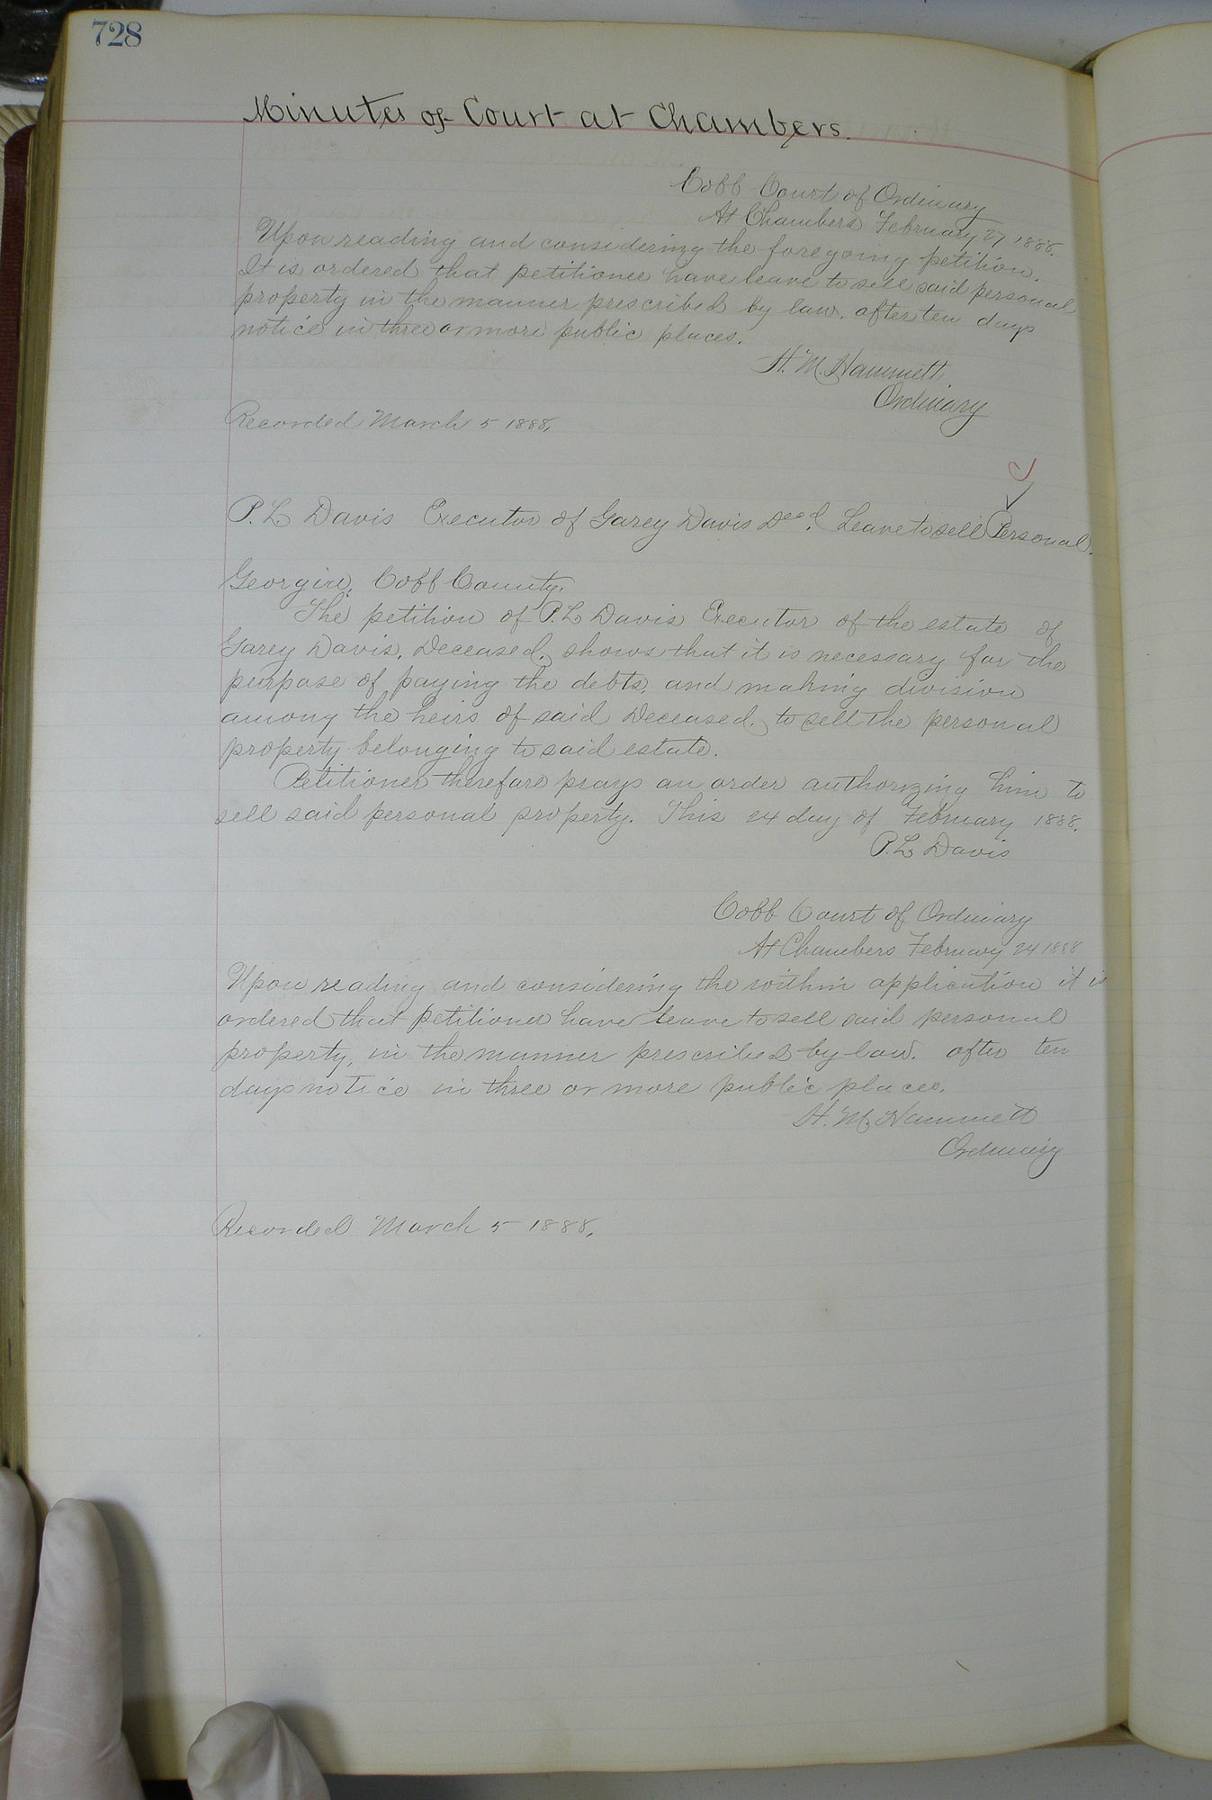 728
Minutes of Court at Chambers.
Cobb Court of Ordinary
At Chambers February 27 1888.
Upon reading and considering the foregoing petition.
It is ordered that petitioner have leave to sell said personal
property in the manner prescribed by law. after ten days
notice in three or more public places.
H. M. Hammett
Ordinary
Recorded March 5 1888.
P. L. Davis Executor of Garey Davis Decd. Leave to sell Personal.
Georgia, Cobb County.
The petition of P. L. Davis Executor of the estate of
Garey Davis, Deceased, shows that it is necessary for the
purpose of paying the debts, and making division
among the heirs of said Deceased, to sell the personal
property belonging to said estate.
Petitioner therefore prays an order authorizing him to
sell said personal property. This 24 day of February 1888.
P. L. Davis
Cobb Court of Ordinary
At Chambers February 24 1888
Upon reading and considering the within application it is
ordered that petitioner have leave to sell said personal
property, in the manner prescribed by law. after ten
days notice in three or more public places.
H. M. Hammett
Ordinary
Recorded March 5 1888.